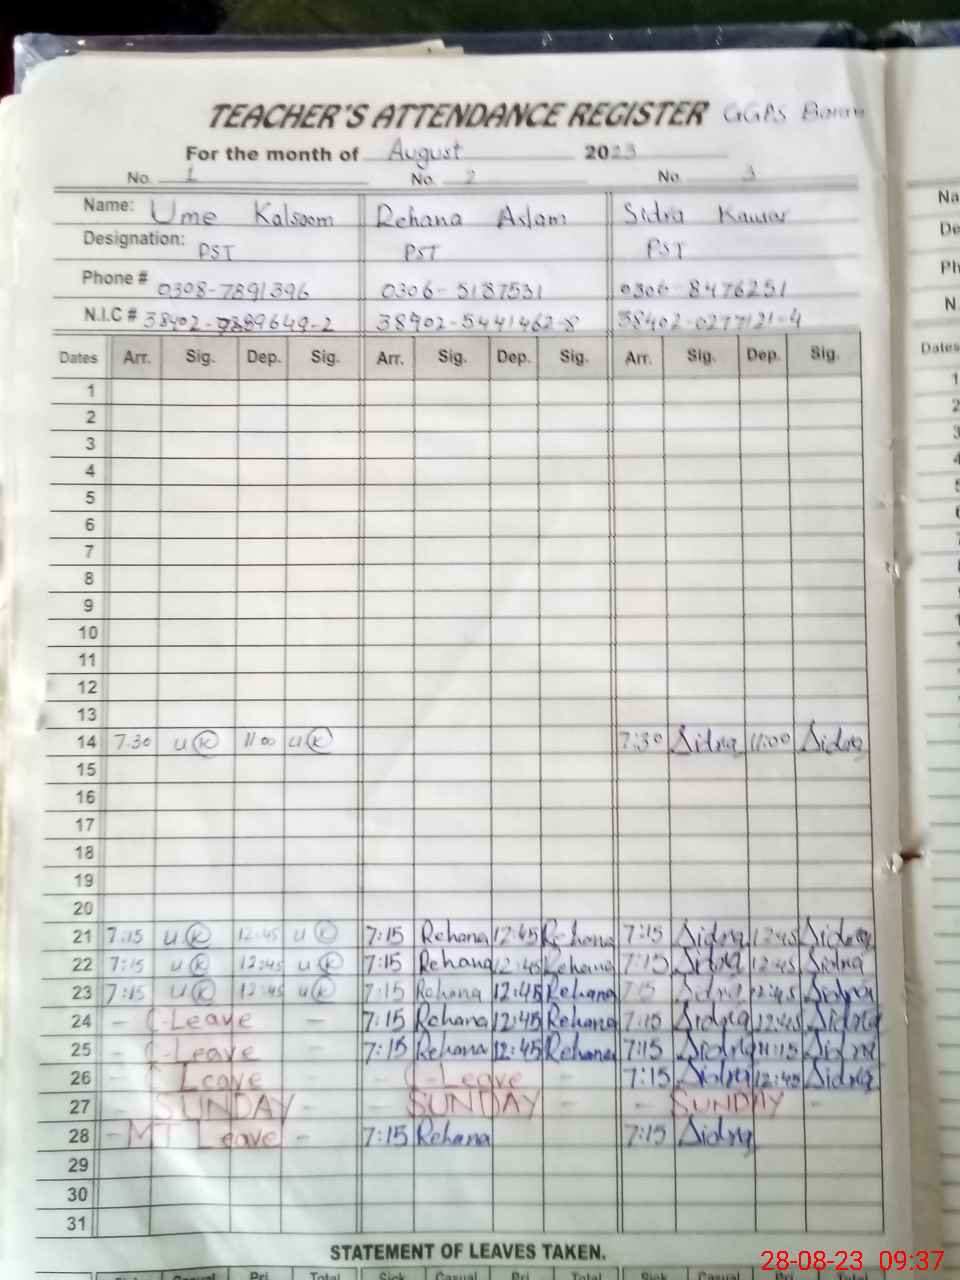 TEACHER'S ATTENDANCE REGISTER GGPS
For the month of August 2023
No. 1 No. 2 No. 3
Name: Ume Kalsoom Rehana Aslam Sidra
Designation: PST PST PST
Phone # 0308-7891396 0306-5187531 0306-8476251
N.I.C # 38402-5441462-8 38402-0277121-4
Dates Arr. Sig. Dep. Sig. Arr. Sig. Dep. Sig. Arr. Sig. Dep. Sig.
1
2
3
4
5
6
7
8
9
10
11
12
13
14 7.30 U K 11 00 U K 7:30 Sidra 11:00 Sidra
15
16
17
18
19
20
21 7:15 U K 12:45 U K 7:15 Rehana 12:45 Rehana 7:15 Sidra 12:45 Sidra
22 7:15 U K 12:45 U K 7:15 Rehana 12:45 Rehana 7:15 Sidra 12:45 Sidra
23 7:15 U K 12:45 U K 7:15 Rehana 12:45 Rehana 7:15 Sidra 12:45 Sidra
24 - C-Leave - 7:15 Rehana 12:45 Rehana 7:15 Sidra 12:45 Sidra
25 - C-Leave - 7:15 Rehana 12:45 Rehana 7:15 Sidra 11:15 Sidra
26 - C Leave - - C-Leave - 7:15 Sidra 12:45 Sidra
27 - SUNDAY - - SUNDAY - - SUNDAY -
28 - MT Leave - 7:15 Rehana 7:15 Sidra
29
30
31
STATEMENT OF LEAVES TAKEN.
Dates Sick Casual Pri. Total Sick Casual Pri. Total Sick Casual Pri. Total
28-08-23 09:37